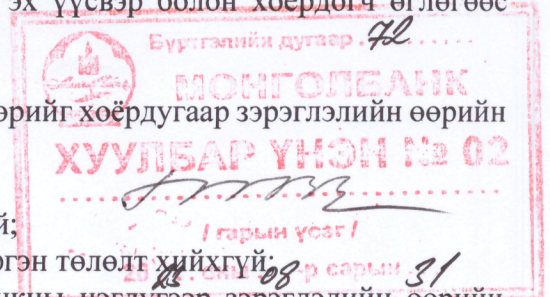 эх үүсвэр болон хоёрдогч өглөгөөс
Бүртгэлийн дугаар 72
МОНГОЛБАНК
эрийг хоёрдугаар зэрэглэлийн өөрийн
ХУУЛБАР ҮНЭН № 02
й;
/ гарын үсэг /
гэн төлөлт хийхгүй;
08 -р сарын 31
нэгдүгээр зэрэглэлийн өөрийн